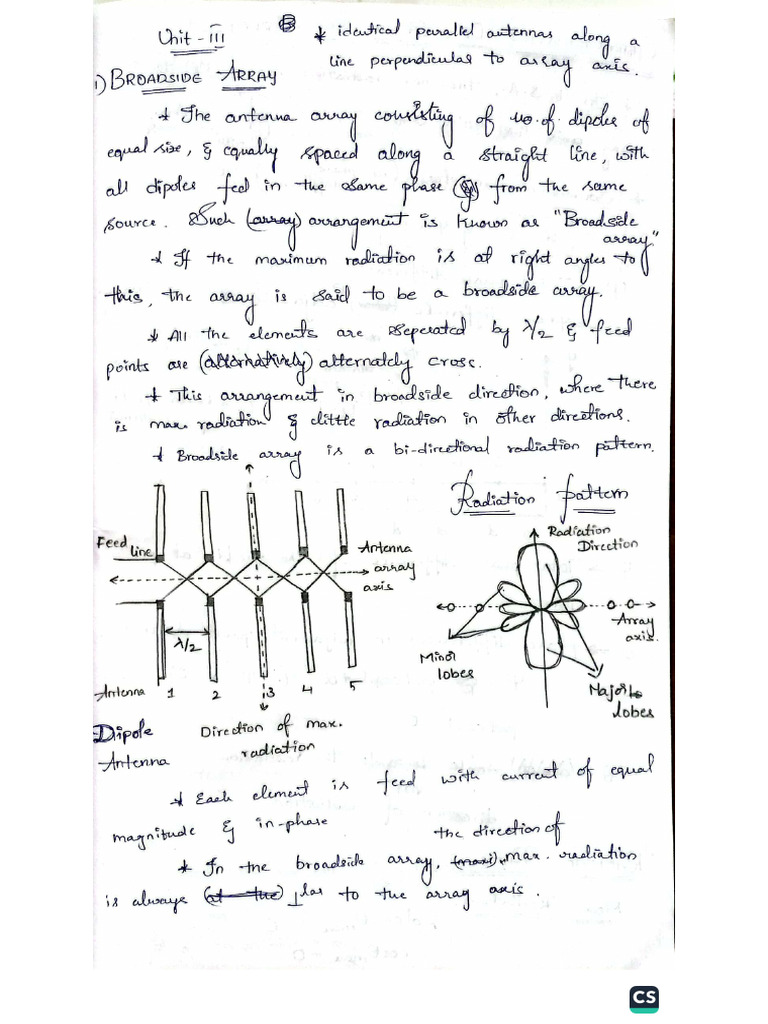 Unit - III
* identical parallel antennas along a
line perpendicular to array axis.
1) BROADSIDE ARRAY
* The antenna array consisting of no. of dipoles of
equal size, & equally spaced along a straight line, with
all dipoles feed in the same phase from the same
source. Such (array) arrangement is known as "Broadside
array"
* If the maximum radiation is at right angles to
this, the array is said to be a broadside array.
* All the elements are seperated by λ/2 & feed
points are (alternatively) alternately cross.
* This arrangement in broadside direction, where there
is max. radiation & little radiation in other directions.
* Broadside array is a bi-directional radiation pattern.
Radiation pattern
Feed
line
Antenna
array
axis
λ/2
Antenna 1 2 3 4 5
Dipole
Antenna
Direction of max.
radiation
Radiation
Direction
Array
axis.
Minor
lobes
Major
lobes
* Each element is feed with current of equal
magnitude & in-phase
the direction of
* In the broadside array, (maxi) max. radiation
is always (at the) ⊥lar to the array axis.
CS